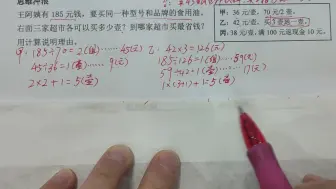 王阿姨有185元钱，要买同一种型号和品牌的食用油，
右面三家超市各可以买多少壶？到哪家超市买最省钱？
用计算说明理由。
甲：36元/壶，70元2壶。
乙：42元/壶，买3壶送一壶。
丙：38元/壶，满100元返现金10元。
甲：185÷70=2(组)……45(元)
45÷36=1(壶)……9(元)
2×2+1=5(壶)
乙：42×3=126(元)
185÷126=1(组)…59(元)
59÷42=1(壶)……17(元)
1×(3+1)+1=5(壶)